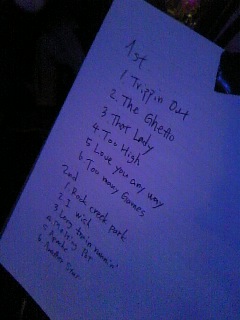 1st
1. Trippin Out
2. The Ghetto
3. That Lady
4. Too High
5 Love you any way
6 Too many Games
2nd
1. Rock creek park
2. I wish
3. Long train runnin'
4. Melting Pot
5.
6.